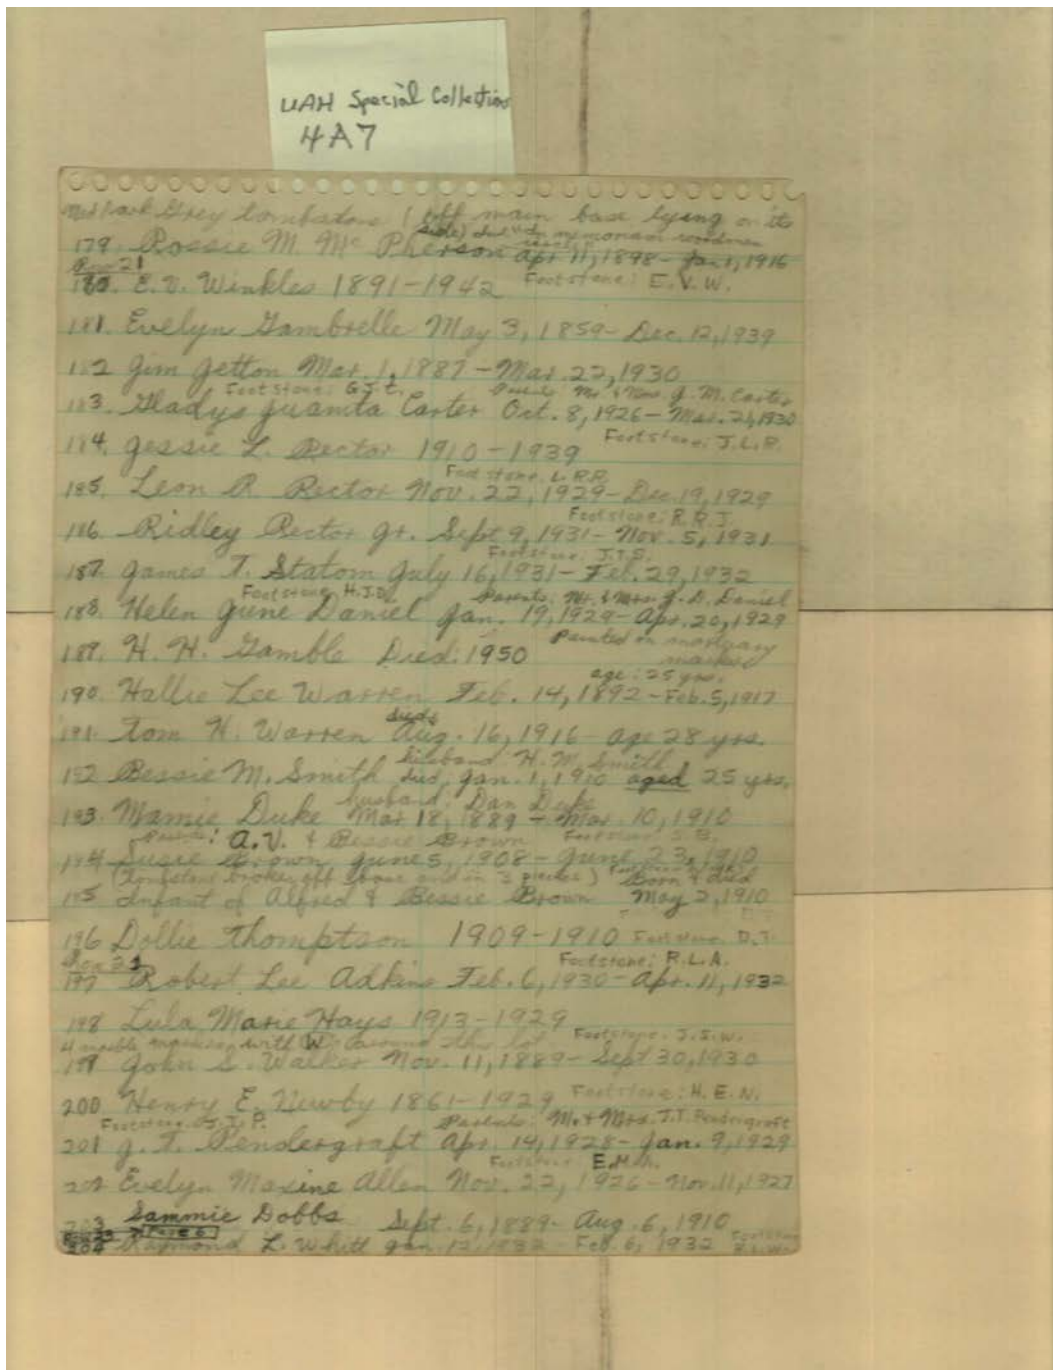 UAH Special Collections
4A7
Grey tombstone (off main base lying on its
side) memoriam woodmen
179. Rossie M. McPherson Apr 11, 1898 - Jan. 1, 1916
Row 21
Footstone: E.V.W.
180. E.V. Winkles 1891-1942
181. Evelyn Gambrelle May 3, 1859- Dec. 12, 1939
182 Jim Jetton Mar. 1, 1887 - Mar. 22, 1930
Footstone: G.J.C. Parents: Mr. & Mrs. J. M. Carter
183. Gladys Juanita Carter Oct. 8, 1926- Mar. 21, 1930
Footstone: J.L.R.
184. Jessie L. Rector 1910-1939
Footstone: L.R.R.
185. Leon R. Rector Nov. 22, 1929- Dec. 19, 1929
Footstone: R.R.J.
186. Ridley Rector Jr. Sept 9, 1931- Nov. 5, 1931
Footstone: J.T.S.
187. James T. Statom July 16, 1931- Feb. 29, 1932
Footstone: H.J.D. Parents: Mr. & Mrs. J. D. Daniel
188. Helen June Daniel Jan. 19, 1929- Apr. 20, 1929
Painted on mortuary
marker
189. H. H. Gamble Died: 1950
age: 25 yrs.
190. Hallie Lee Warren Feb. 14, 1892 - Feb. 5, 1917
died:
191. Tom H. Warren Aug. 16, 1916 - age 28 yrs.
husband H. M. Smith
192 Bessie M. Smith died, Jan. 1, 1910 aged 25 yrs.
husband: Dan Duke
193. Mamie Duke Mar 18, 1889 - Mar. 10, 1910
Parents: A.V. & Bessie Brown Footstone: S.B.
194 Susie Brown June 5, 1908 - June 23, 1910
(Tombstone broken off base and in 3 pieces) Born & died
195 Infant of Alfred & Bessie Brown May 2, 1910
196 Dollie Thomptson 1909-1910 Footstone: D.T.
Row 22 Footstone: R.L.A.
197 Robert Lee Adkins Feb. 6, 1930- Apr. 11, 1932
198 Lula Marie Hays 1913-1929
4 marble with W. around this lot Footstone: J.S.W.
199 John S. Walker Nov. 11, 1889- Sept 30, 1930
200 Henry E. Newby 1861-1929 Footstone: H.E.N.
Footstone: J.T.P. Parents: Mr. & Mrs. J.T. Pendergraft
201 J. T. Pendergraft Apr. 14, 1928- Jan. 9, 1929
Footstone: E.M.A.
202 Evelyn Maxine Allen Nov. 22, 1926 - Nov. 11, 1927
203 Sammie Dobbs Sept. 6, 1889- Aug. 6, 1910
204 Raymond L. Whitt Jan. 12, 1932 - Feb. 6, 1932 Footstone R.L.W.